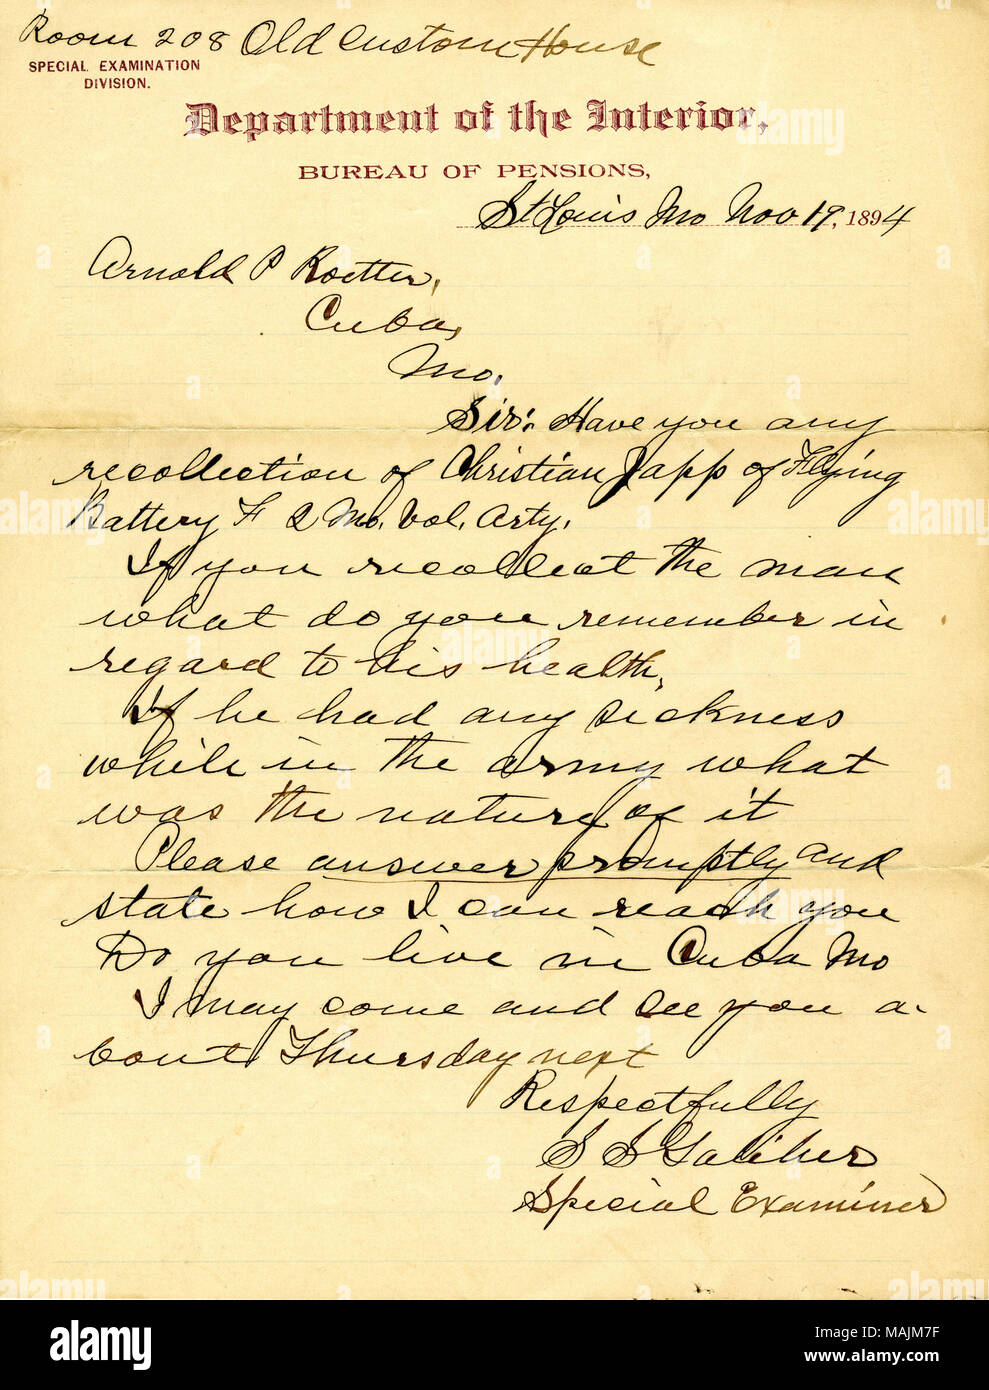 Room 208 Old Custom House
SPECIAL EXAMINATION
DIVISION.
Department of the Interior,
BUREAU OF PENSIONS,
St Louis Mo Nov 19, 1894
Arnold P Roetter,
Cuba,
Mo.
Sir: Have you any
recollection of Christian Japp of Flying
Battery F 2 Mo. Vol. Arty.
If you recollect the man
what do you remember in
regard to his health,
If he had any sickness
while in the army what
was the nature of it
Please answer promptly and
state how I can reach you
Do you live in Cuba Mo
I may come and see you a-
bout Thursday next
Respectfully
S S Galiher
Special Examiner
alamy
Image ID: MAJM7F
www.alamy.com